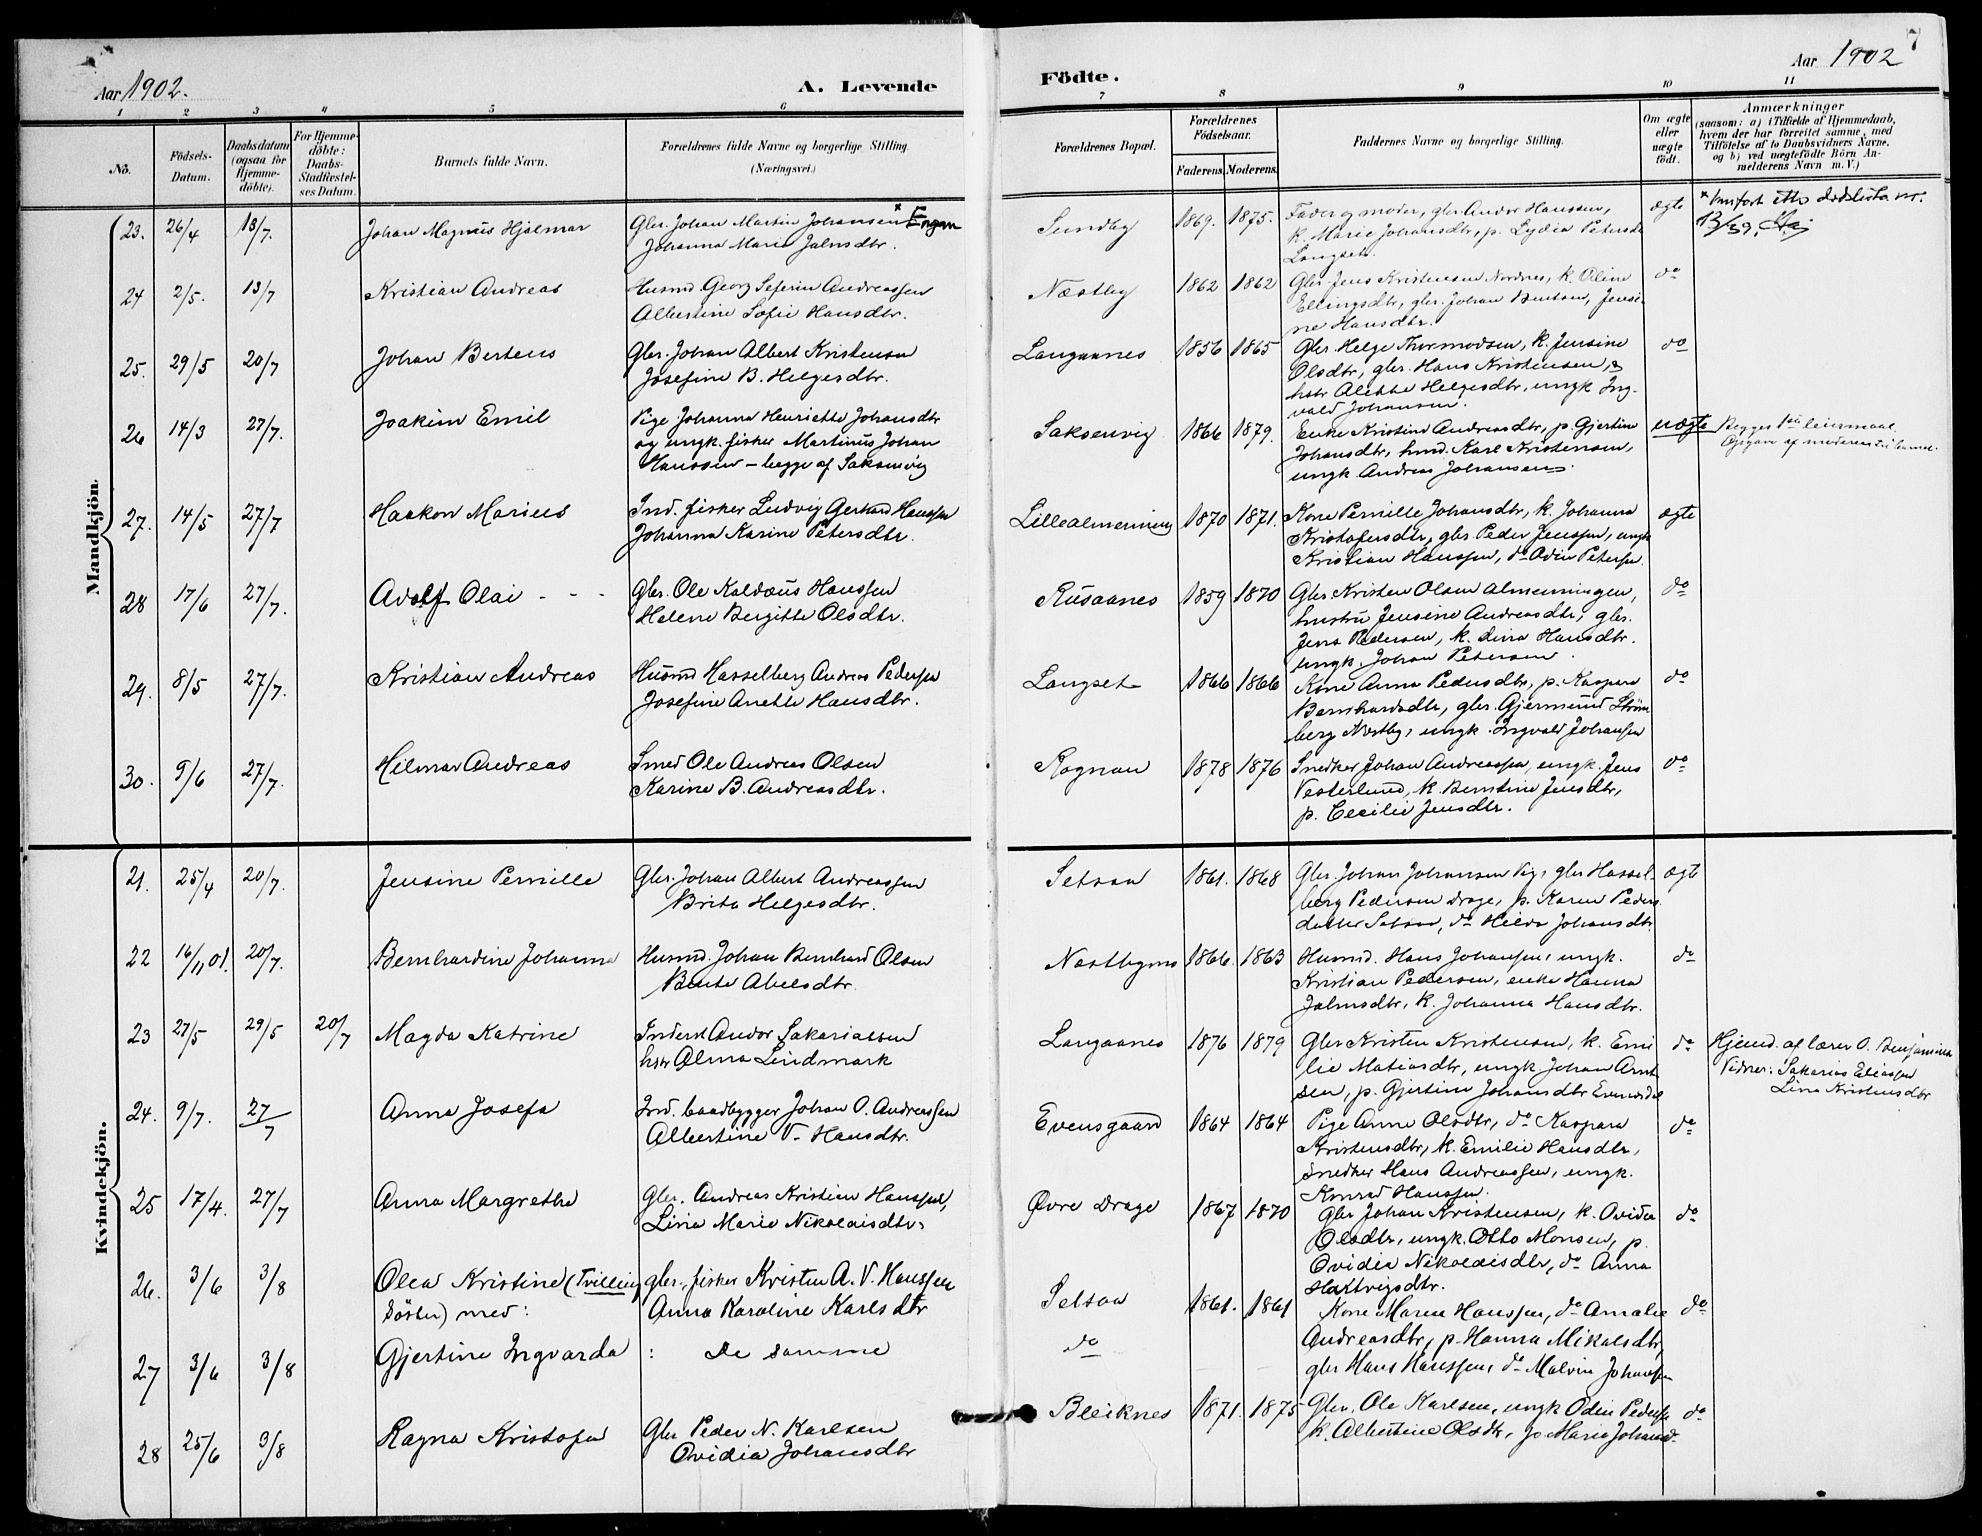 Aar 1902.
A. Levende
Födte.
Aar 1902
7
1 2 3 4 5 6 7 8 9 10 11
No.
Födsels-
Datum.
Daabsdatum
(ogsaa for
Hjemme-
döbte).
For Hjemme-
döbte:
Daabs-
Stadfestel-
ses Datum.
Barnets fulde Navn.
Forældrenes fulde Navne og borgerlige Stilling.
(Næringsvei.)
Forældrenes Bopæl.
Forældrenes
Födselsaar.
Faderens. Moderens.
Faddernes Navne og borgerlige Stilling.
Om ægte
eller
uægte
födt.
Anmærkninger
(saasom: a) i Tilfælde af Hjemmedaab,
hvem der har forrettet samme, med
Tilföielse af to Daabsvidners Navne,
og b) ved uægtefödte Börn An-
melderens Navn m. V.)
Mandkjön.
23. 26/4 13/7. Johan Magnus Hjalmar
Gbr. Johan Martin Johansen × Engan
Johanna Marie Jalmsdtr.
Sundby 1869. 1875.
Fader og moder, gbr. Andor Hanssen,
k. Marie Johansdtr, p. Lydia Petersd
Langset.
ægte
× Innført etter dødsliste nr.
13/59.
24 2/5. 13/7 Kristian Andreas
Husmd. Georg Seferin Andreassen
Albertine Sofie Hansdtr.
Næstby 1862 1862
Gbr. Jens Kristensen Nordnes, k. Oline
Ellingsdtr, gbr. Johan Bentsen, Jensi-
ne Hansdtr.
do
25. 29/5 20/7 Johan Bertens
Gbr. Johan Albert Kristensen
Josefine B. Helgesdtr.
Langaanes 1856 1865
Gbr. Helge Thormodsen, k. Jensine
Olsdtr, gbr. Hans Kristensen, &
hstr Alette Helgesdtr, ungk Ing-
vald Johansen.
do
26 14/3 27/7. Joakim Emil
Pige Johanna Henriette Johansdtr
og ungk. fisker Martinus Johan
Hanssen – begge af Saksenvig
Saksenvig 1866 1879.
Enke Kristine Andreasdtr, p. Gjertine
Johansdtr, husmd. Karl Kristensen,
ungk Andreas Johansen.
uægte
Begges 1ste leiermaal.
Opgave af moderen
27. 14/5 27/7 Haakon Marius
Ind. fisker Ludvig Gerhard Hanssen
Johanna Karine Petersdtr.
Lillealmenning 1870 1871.
Kone Pernille Johansdtr, k. Johanna
Kristofersdtr, gbr. Peder Jenssen, ungk
Kristian Hanssen, do Odin Petersen
ægte
28 17/6 27/7. Adolf Olai - - -
Gbr. Ole Kaldæus Hanssen
Helene Bergitte Olsdtr.
Rusaanes 1859 1870
Gbr Kristen Olsen Almenningen,
hustru Jensine Andreasdtr, gbr.
Jens Pedersen, k. Lina Hansdtr.
ungk. Johan Petersen.
do
29. 8/5 27/7. Kristian Andreas
Husmd Hasselberg Andreas Pedersen
Josefine Anette Hansdtr.
Langset 1866 1866
Kone Anna Pedersdtr, p. Kaspara
Bernhardsdtr, gbr. Gjermund Strøm
berg Næstby, ungk. Ingvald Johansen
do
30. 9/6 27/7. Hilmar Andreas
Smed Ole Andreas Olsen
Karine B. Andreasdtr.
Rognan 1878 1876
Snedker Johan Andreassen, ungk. Jens
Vesterlund, k. Berntine Jensdtr,
p. Cecilie Jensdtr.
do
Kvindekjön.
21. 25/4 20/7. Jensine Pernille
Gbr. Johan Albert Andreassen
Brita Helgesdtr.
Setsaa 1861. 1868
Gbr. Johan Johansen Vig, gbr Hassel-
berg Pedersen Drage, p. Karen Peders
datter Setsaa, do Hilda Johansdtr.
ægte
22 16/11 01. 20/7. Bernhardine Johanna
Husmd. Johan Bernhard Olsen
Berte Abelsdtr.
1866. 1863
Husmd. Hans Johansen, ungk.
Kristian Pedersen, enke Hanna
Jalmsdtr, k. Johanna Hansdtr.
do
23 27/5 29/5 20/7 Magda Katrine
Inderst Andor Sakariassen
hstr Alma Lindmark
Langaanes 1876 1879
Gbr Kristen Kristensen, k. Emi
lie Matiasdtr, ungk Johan Arnt
sen, p. Gjertine Johansdtr Evensdal
do
Hjemd. af lærer O. Benjaminsen
Vidner: Sakarias Eliassen
Lina Kristensdtr
24. 9/7. 27/7 Anna Josefa
Ind. baadbygger Johan O. Andreassen
Albertine V. Hansdtr.
Evensgaard 1864 1864
Pige Anne Olsdtr, do Kaspara
Kristensdtr, k. Emilie Hansdtr,
Snedker Hans Andreassen, ungk.
Konrad Hanssen.
do
25 17/4. 27/7 Anna Margrethe
Gbr. Andreas Kristian Hanssen,
Lina Marie Nikolaisdtr.
Øvre Drage 1867 1870
Gbr Johan Kristensen, k. Ovidia
Olsdtr, ungk. Otto Monsen, p.
Ovidia Nikolaisdtr, do Anna
Hartvigsdtr.
do
26. 3/6 3/8 Olea Kristine (Tvilling
söster) med:
gbr., fisker Kristen A. V. Hanssen
Anna Karoline Karlsdtr
Setsaa 1861. 1861
Kone Maren Hanssen, do Amalie
Andreasdtr, p. Hanna Mikalsdtr,
gbr Hans Hanssen, do Malvin Johansen
do
27 3/6 3/8 Gjertine Ingvarda : De samme
do
28 25/6 3/8 Ragna Kristofa
Gbr Peder N. Karlsen
Ovidia Johansdtr
Bleiknes 1871. 1875
Gbr. Ole Karlsen, ungk Odin Pedersen
k. Albertine Olsdtr, p Marie Johansd.
do